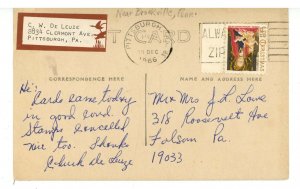 Near Brockville, Penn.
C. W. DE LEUZE
2834 CLERMONT AVE.
PITTSBURGH, PA.
PITTSBURGH
PA
DEC
1966
ALWAYS
ZIP
CARD
CORRESPONDENCE HERE
NAME AND ADDRESS HERE
Hi:
Cards came today
in good cond.
Stamps cancelled
nice too. Thanks
Chuck de Leuze
Mr & Mrs J. L. Lowe
318 Roosevelt Ave
Folsom Pa.
19033